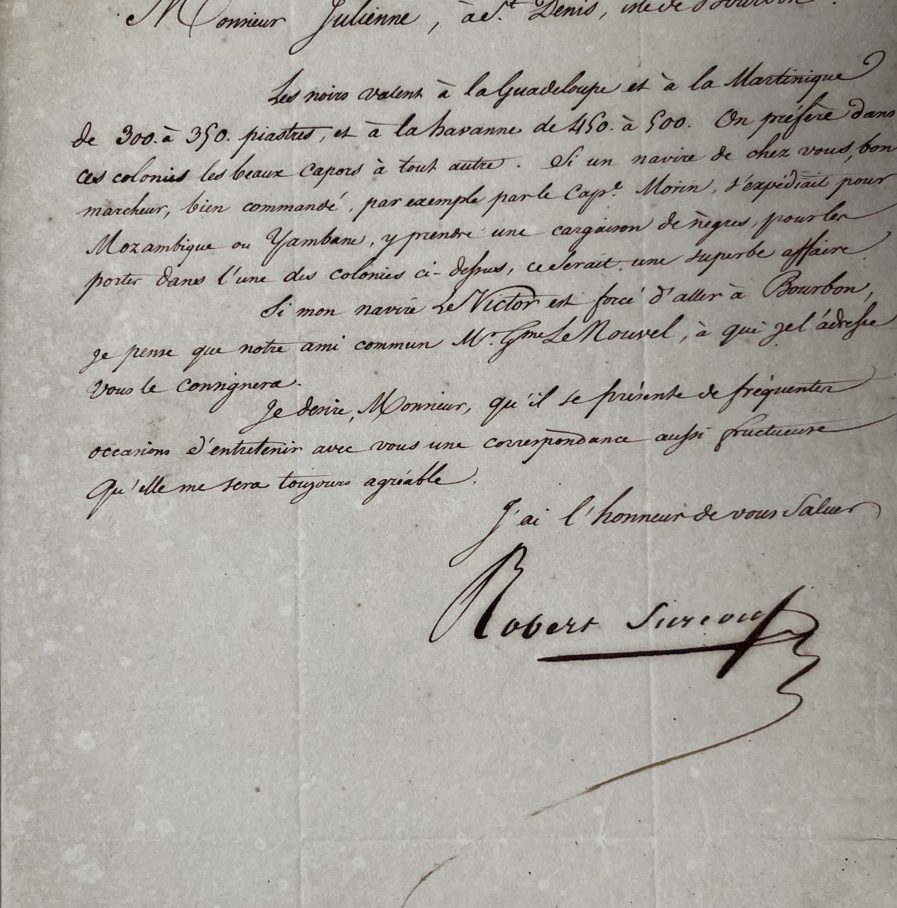 Monsieur Julienne, à St. Denis, isle de Bourbon.
Les noirs valent à la Guadeloupe et à la Martinique
de 300. à 350. piastres, et à la havanne de 450. à 500. On préfère dans
ces colonies les beaux capors à tout autre. Si un navire de chez vous, bon
marcheur, bien commandé, par exemple par le Capne. Morin, s'expédiait pour
Mozambique ou Yambane, y prendre une cargaison de nègres, pour les
porter dans l'une des colonies ci-dessus, ce serait une superbe affaire
Si mon navire Le Victor est forcé d'aller à Bourbon,
je pense que notre ami commun Mr. Gme Le Nouvel, à qui je l'adresse
vous le consignera.
Je desire, Monsieur, qu'il se présente de fréquentes
occasions d'entretenir avec vous une correspondance aussi fructueuse
Qu'elle me sera toujours agréable.
J'ai l'honneur de vous Saluer
Robert Surcouf